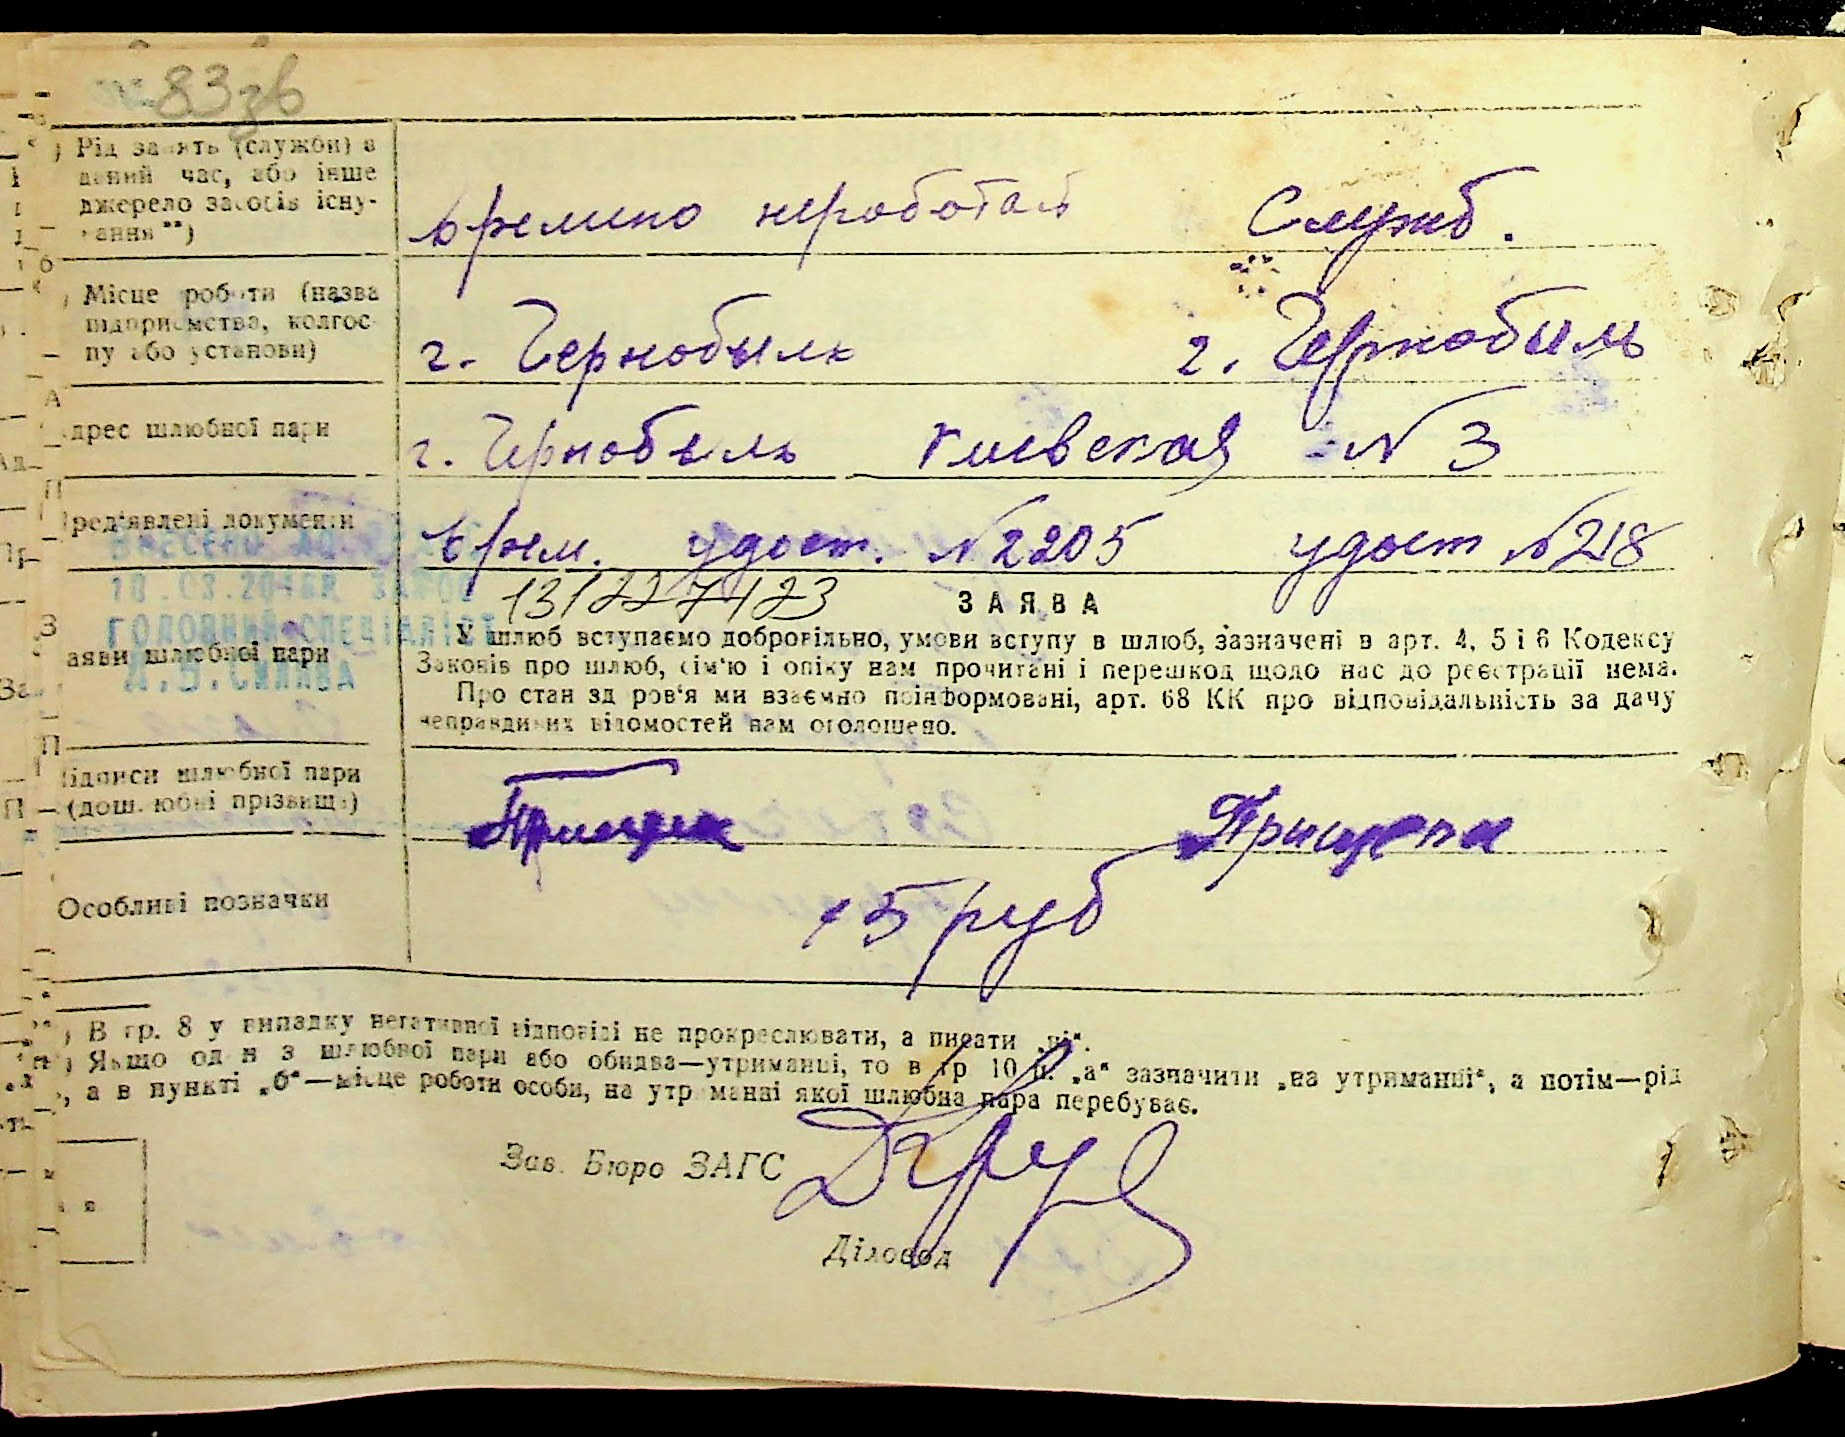 83зв
Рід занять (служби) в
даний час, або інше
джерело засобів існу-
вання **)
времено неработает Служб.
Місце роботи (назва
підприємства, колгос-
пу або установи)
г. Чернобыль г. Чернобыль
Адрес шлюбної пари
г. Чернобыль Киевская № 3
Пред'явлені документи
Врем. удост. № 2205 удост № 218
ВНЕСЕНО ДО
ГОЛОВНИЙ СПЕЦІАЛІСТ
ЗАЯВА
Заяви шлюбної пари
У шлюб вступаємо добровільно, умови вступу в шлюб, зазначені в арт. 4, 5 і 6 Кодексу
Законів про шлюб, сім'ю і опіку нам прочитані і перешкод щодо нас до реєстрації нема.
Про стан здоров'я ми взаємно поінформовані, арт. 68 КК про відповідальність за дачу
неправдивих відомостей нам оголошено.
Підписи шлюбної пари
(дошлюбні прізвища)
Прищепа
Особливі позначки
15 руб
*) В гр. 8 у випадку негативної відповіді не прокреслювати, а писати „ні“.
**) Якщо один з шлюбної пари або обидва—утриманці, то в гр 10 п. „а“ зазначити „на утриманні“, а потім—рід
, а в пункті „б“—місце роботи особи, на утриманні якої шлюбна пара перебуває.
Зав. Бюро ЗАГС
Діловод